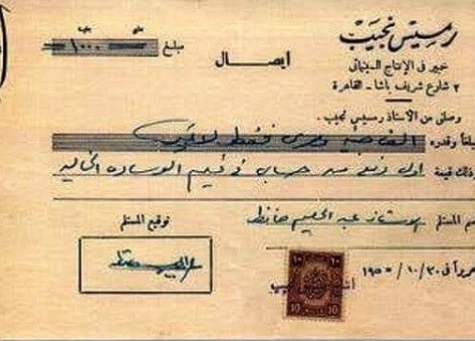 رمسيس نجيب
خبير فى الإنتاج السينمائى
٢ شارع شريف باشا - القاهرة
ايصال
مليم جنيه
مبلغ ١٠٠٠
وصلنى من الأستاذ رمسيس نجيب .
مبلغاً وقدره ألف جنيه مصرى فقط لا غير
وذلك قيمة أول دفعة من حساب فيلم الوسادة الخالية
اسم المستلم الاستاذ عبد الحليم حافظ
توقيع المستلم
تحريراً فى ٣٠ / ١٠ / ١٩٥٥
١٠ ١٠
10 10